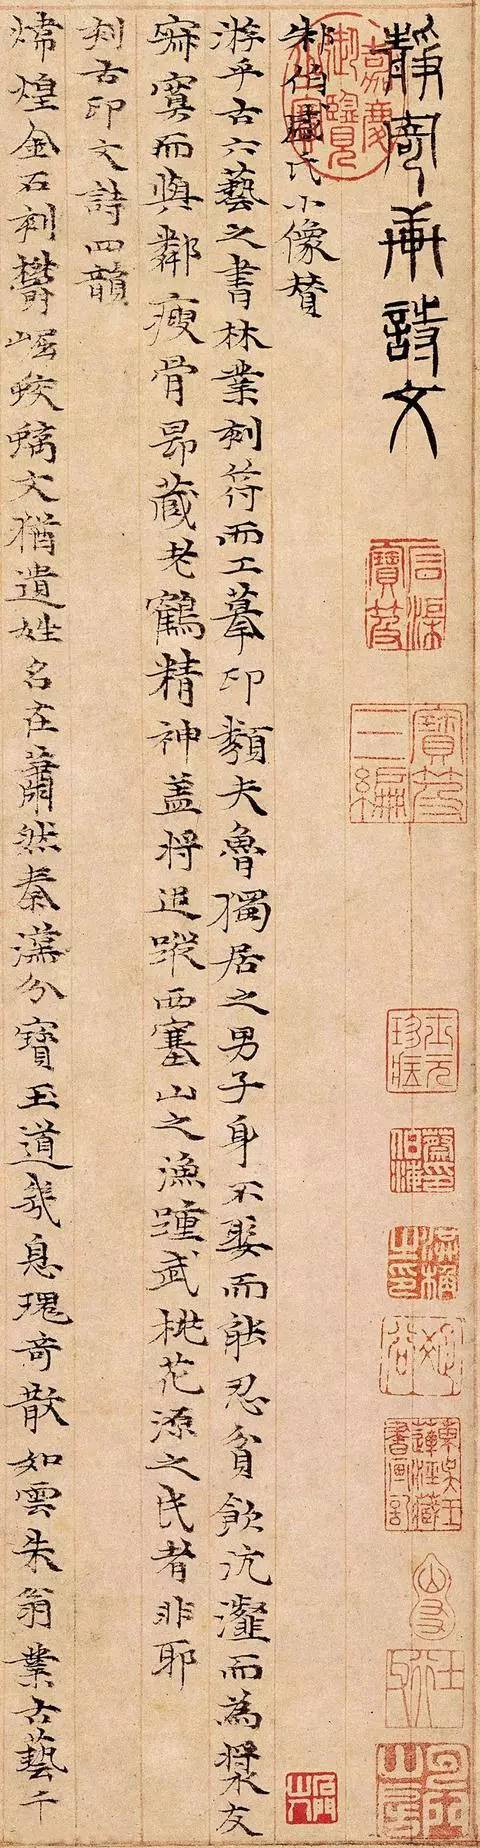 靜寄軒詩文
朱伯盛氏小像贊
游乎古六藝之書林業刻符而工摹印類夫魯獨居之男子身不娶而能忍貧飲沆瀣而為漿友
寂寞而與鄰瘦骨昂藏老鶴精神蓋將追蹤西塞山之漁踵武桃花源之民者非耶
刻古印文詩四韻
煒煌金石刻鬱崛蛟螭文猶遺姓名在蕭然秦漢分寶玉道幾息瑰奇散如雲朱翁業古藝千
嘉慶御覽之寶
石渠寶笈
寶笈三編